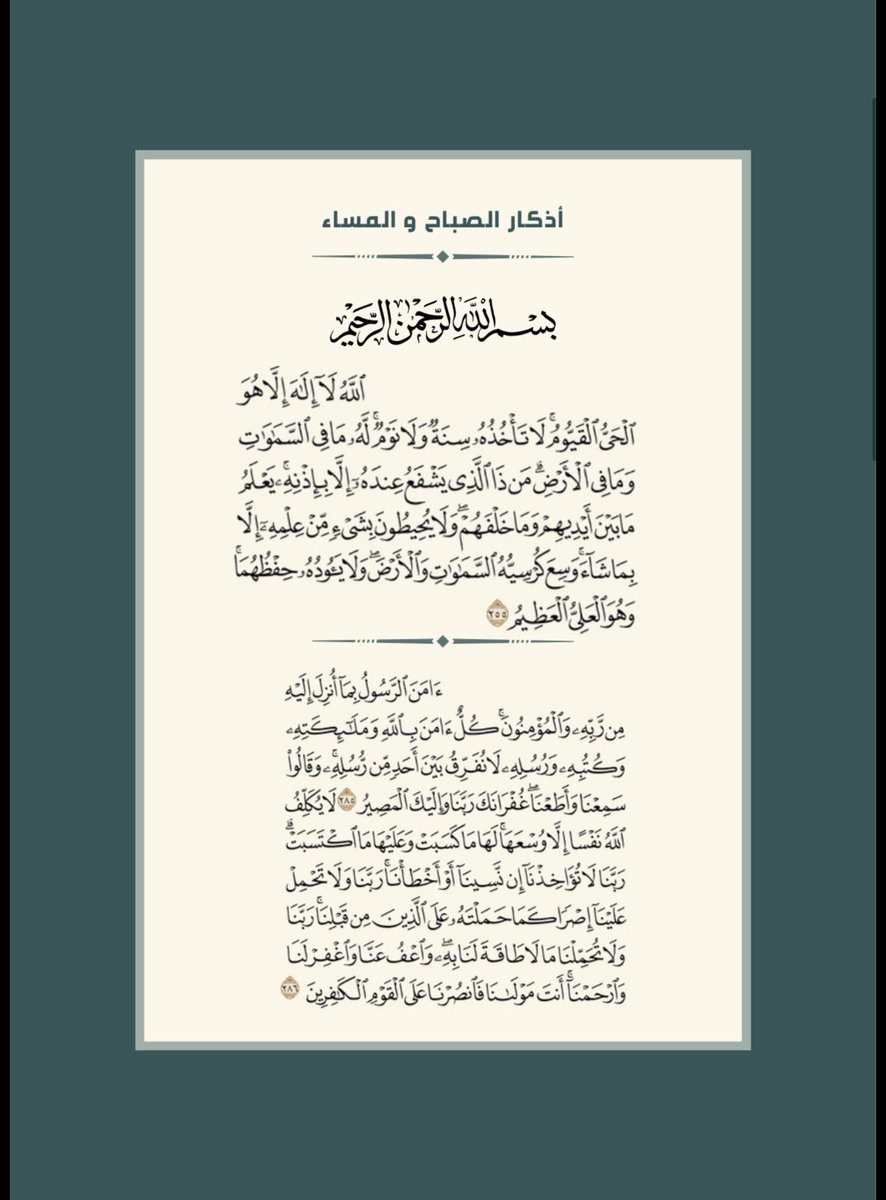 أذكار الصباح و المساء
بِسْمِ اللَّهِ الرَّحْمَٰنِ الرَّحِيمِ
ٱللَّهُ لَآ إِلَٰهَ إِلَّا هُوَ
ٱلْحَىُّ ٱلْقَيُّومُ ۚ لَا تَأْخُذُهُۥ سِنَةٌ وَلَا نَوْمٌ ۚ لَّهُۥ مَا فِى ٱلسَّمَٰوَٰتِ
وَمَا فِى ٱلْأَرْضِ ۗ مَن ذَا ٱلَّذِى يَشْفَعُ عِندَهُۥٓ إِلَّا بِإِذْنِهِۦ ۚ يَعْلَمُ
مَا بَيْنَ أَيْدِيهِمْ وَمَا خَلْفَهُمْ ۖ وَلَا يُحِيطُونَ بِشَىْءٍ مِّنْ عِلْمِهِۦٓ إِلَّا
بِمَا شَآءَ ۚ وَسِعَ كُرْسِيُّهُ ٱلسَّمَٰوَٰتِ وَٱلْأَرْضَ ۖ وَلَا يَـُٔودُهُۥ حِفْظُهُمَا ۚ
وَهُوَ ٱلْعَلِىُّ ٱلْعَظِيمُ ٢٥٥
ءَامَنَ ٱلرَّسُولُ بِمَآ أُنزِلَ إِلَيْهِ
مِن رَّبِّهِۦ وَٱلْمُؤْمِنُونَ ۚ كُلٌّ ءَامَنَ بِٱللَّهِ وَمَلَٰٓئِكَتِهِۦ
وَكُتُبِهِۦ وَرُسُلِهِۦ لَا نُفَرِّقُ بَيْنَ أَحَدٍ مِّن رُّسُلِهِۦ ۚ وَقَالُوا۟
سَمِعْنَا وَأَطَعْنَا ۖ غُفْرَانَكَ رَبَّنَا وَإِلَيْكَ ٱلْمَصِيرُ ٢٨٥ لَا يُكَلِّفُ
ٱللَّهُ نَفْسًا إِلَّا وُسْعَهَا ۚ لَهَا مَا كَسَبَتْ وَعَلَيْهَا مَا ٱكْتَسَبَتْ ۗ
رَبَّنَا لَا تُؤَاخِذْنَآ إِن نَّسِينَآ أَوْ أَخْطَأْنَا ۚ رَبَّنَا وَلَا تَحْمِلْ
عَلَيْنَآ إِصْرًا كَمَا حَمَلْتَهُۥ عَلَى ٱلَّذِينَ مِن قَبْلِنَا ۚ رَبَّنَا
وَلَا تُحَمِّلْنَا مَا لَا طَاقَةَ لَنَا بِهِۦ ۖ وَٱعْفُ عَنَّا وَٱغْفِرْ لَنَا
وَٱرْحَمْنَآ ۚ أَنتَ مَوْلَىٰنَا فَٱنصُرْنَا عَلَى ٱلْقَوْمِ ٱلْكَٰفِرِينَ ٢٨٦